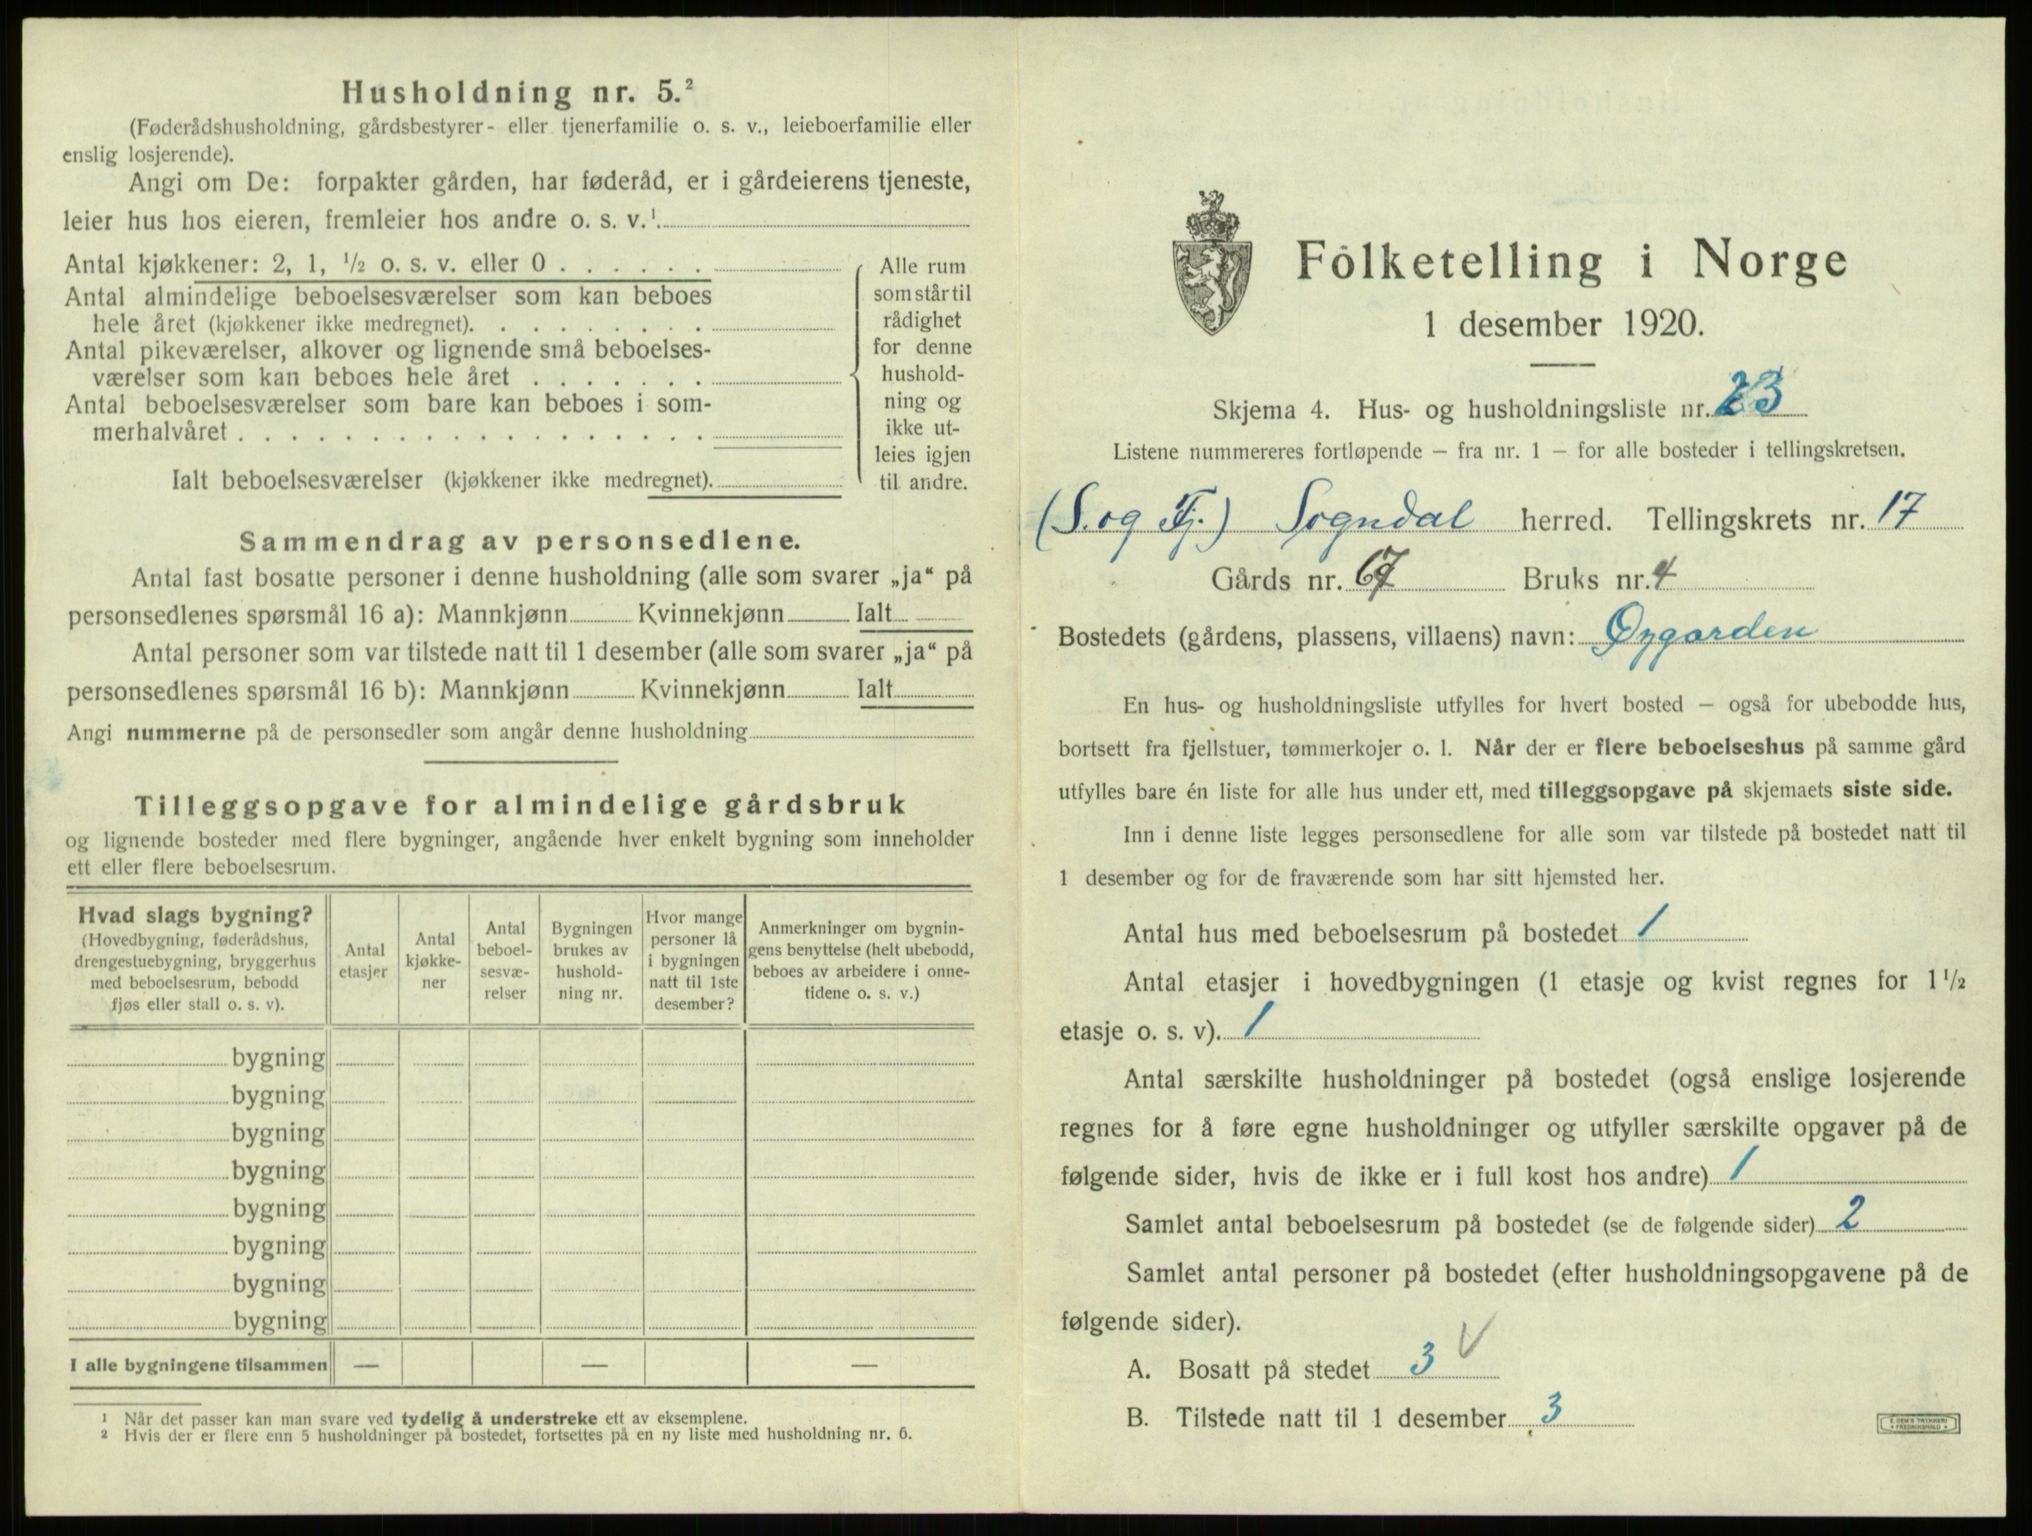 Husholdning nr. 5.²
(Føderådshusholdning, gårdsbestyrer- eller tjenerfamilie o. s. v., leieboerfamilie eller
enslig losjerende).
Angi om De: forpakter gården, har føderåd, er i gårdeierens tjeneste,
leier hus hos eieren, fremleier hos andre o. s. v.¹
Antal kjøkkener: 2, 1, ½ o. s. v. eller 0
Antal almindelige beboelsesværelser som kan beboes
hele året (kjøkkener ikke medregnet).
Antal pikeværelser, alkover og lignende små beboelses-
værelser som kan beboes hele året
Antal beboelsesværelser som bare kan beboes i som-
merhalvåret
Ialt beboelsesværelser (kjøkkener ikke medregnet).
Alle rum
som står til
rådighet
for denne
hushold-
ning og
ikke ut-
leies igjen
til andre.
Sammendrag av personsedlene.
Antal fast bosatte personer i denne husholdning (alle som svarer „ja“ på
personsedlenes spørsmål 16 a): Mannkjønn Kvinnekjønn Ialt
Antal personer som var tilstede natt til 1 desember (alle som svarer „ja“ på
personsedlenes spørsmål 16 b): Mannkjønn Kvinnekjønn Ialt
Angi nummerne på de personsedler som angår denne husholdning
Tilleggsopgave for almindelige gårdsbruk
og lignende bosteder med flere bygninger, angående hver enkelt bygning som inneholder
ett eller flere beboelsesrum.
Hvad slags bygning?
(Hovedbygning, føderådshus,
drengestuebygning, bryggerhus
med beboelsesrum, bebodd
fjøs eller stall o. s. v).
Antal
etasjer
Antal
kjøkke-
ner
Antal
beboel-
sesvæ-
relser
Bygningen
brukes av
hushold-
ning nr.
Hvor mange
personer lå
i bygningen
natt til 1ste
desember?
Anmerkninger om bygnin-
gens benyttelse (helt ubebodd,
beboes av arbeidere i onne-
tidene o. s. v.)
bygning
bygning
bygning
bygning
bygning
bygning
bygning
bygning
I alle bygningene tilsammen — — —
¹ Når det passer kan man svare ved tydelig å understreke ett av eksemplene.
² Hvis der er flere enn 5 husholdninger på bostedet, fortsettes på en ny liste med husholdning nr. 6.
Folketelling i Norge
1 desember 1920.
Skjema 4. Hus- og husholdningsliste nr. 23
Listene nummereres fortløpende — fra nr. 1 — for alle bosteder i tellingskretsen.
(S. og Fj.) Sogndal herred. Tellingskrets nr. 17
Gårds nr. 67 Bruks nr. 4
Bostedets (gårdens, plassens, villaens) navn: Øygarden
En hus- og husholdningsliste utfylles for hvert bosted — også for ubebodde hus,
bortsett fra fjellstuer, tømmerkojer o. l. Når der er flere beboelseshus på samme gård
utfylles bare én liste for alle hus under ett, med tilleggsopgave på skjemaets siste side.
Inn i denne liste legges personsedlene for alle som var tilstede på bostedet natt til
1 desember og for de fraværende som har sitt hjemsted her.
Antal hus med beboelsesrum på bostedet 1
Antal etasjer i hovedbygningen (1 etasje og kvist regnes for 1 ½
etasje o. s. v). 1
Antal særskilte husholdninger på bostedet (også enslige losjerende
regnes for å føre egne husholdninger og utfyller særskilte opgaver på de
følgende sider, hvis de ikke er i full kost hos andre) 1
Samlet antal beboelsesrum på bostedet (se de følgende sider) 2
Samlet antal personer på bostedet (efter husholdningsopgavene på de
følgende sider).
A. Bosatt på stedet 3 V
B. Tilstede natt til 1 desember 3